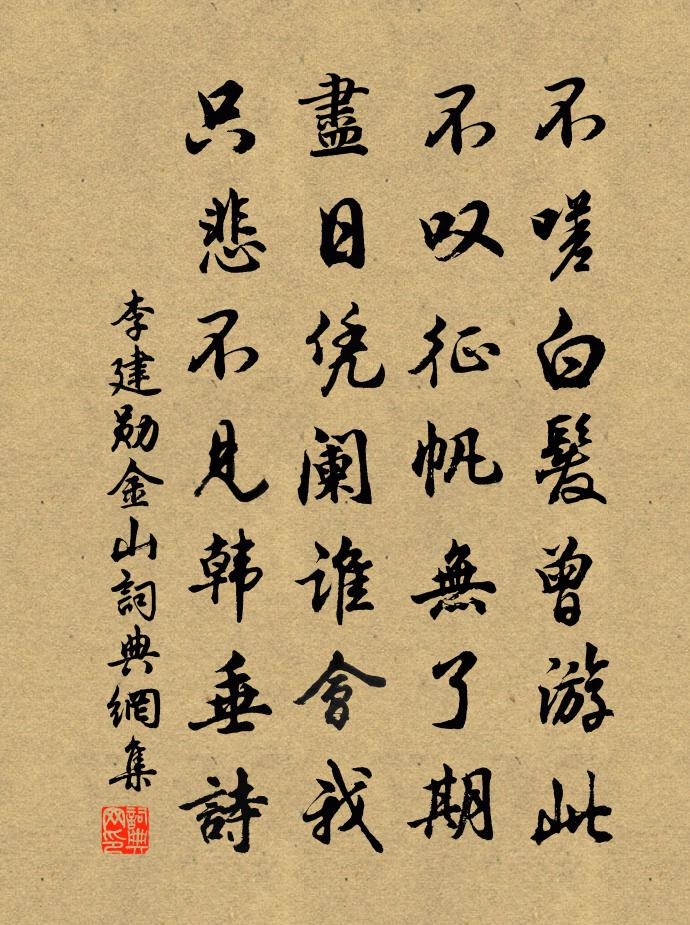 不嗟白髮曾游此
不叹征帆無了期
盡日凭阑谁會我
只悲不見韩垂詩
李建勋金山詞典網集
詞典网印